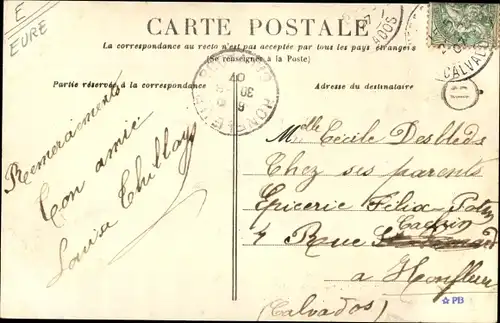 E
EURE
CARTE POSTALE
La correspondance au recto n'est pas acceptée par tous les pays étrangers
(Se renseigner à la Poste)
Partie réservée à la correspondance
Adresse du destinataire
CALVADOS
HONFLEUR
CALVADOS
30
07
Remerciements
Ton amie
Louise Thillay
Melle Cécile Desbleds
Chez ses parents
Epicerie Félix Potin
7 Rue
Cachin
a Honfleur
(Calvados)
PB